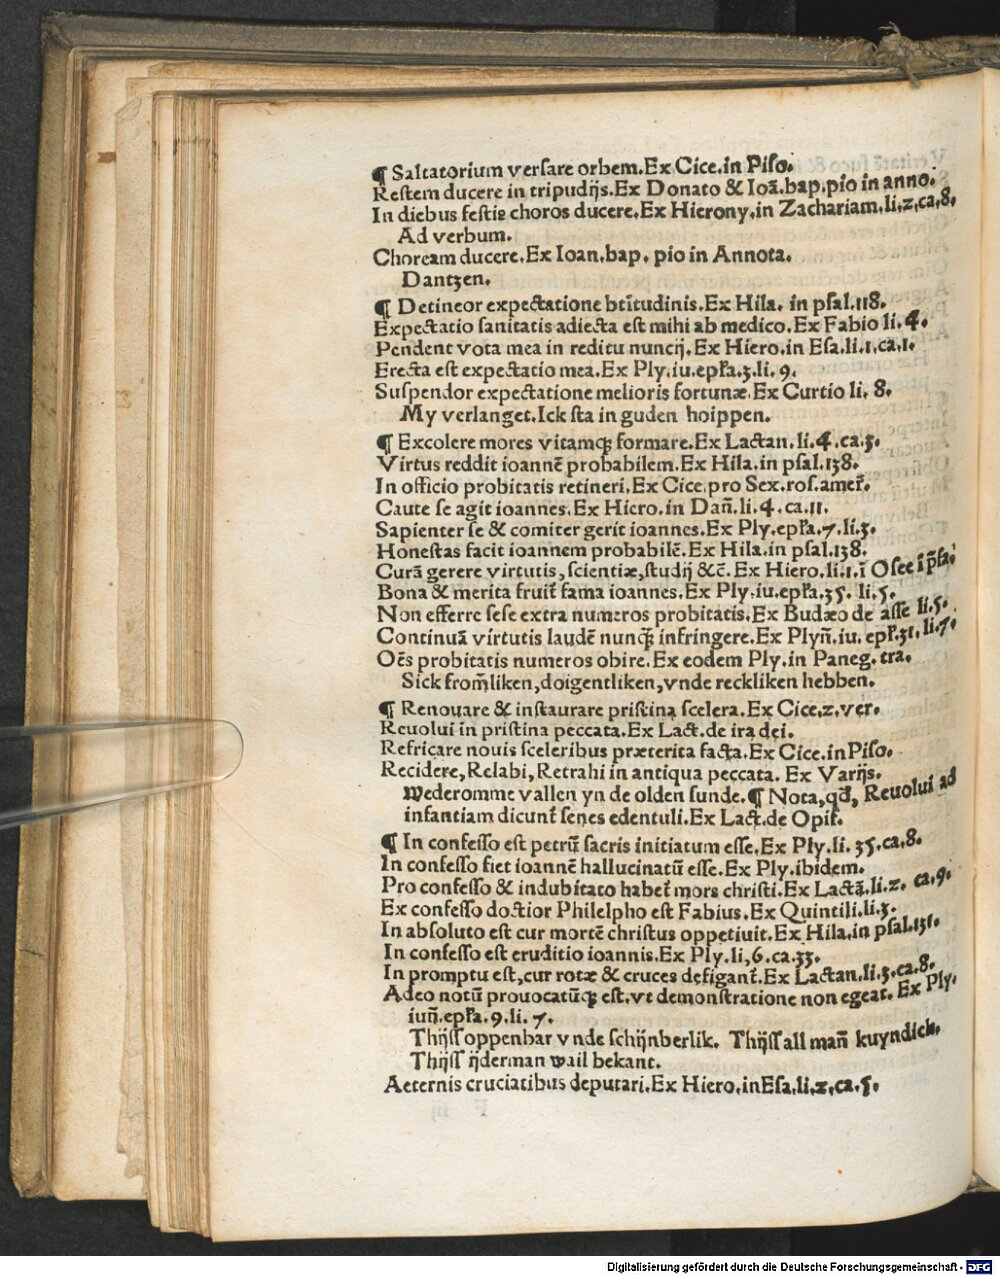 ¶ Saltatorium versare orbem.Ex Cice.in Piso.
Restem ducere in tripudijs.Ex Donato & Ioā.bap.pio in anno.
In diebus festis choros ducere.Ex Hierony.in Zachariam.li.2.ca.8.
Ad verbum.
Choream ducere.Ex Ioan.bap. pio in Annota.
Dantzen.
¶ Detineor expectatione btitudinis.Ex Hila. in psal.118.
Expectatio sanitatis adiecta est mihi ab medico.Ex Fabio li.4.
Pendent vota mea in reditu nuncij.Ex Hiero.in Esa.li.1.ca.1.
Erecta est expectatio mea.Ex Ply.iu.epl'a.3.li.9.
Suspendor expectatione melioris fortunæ.Ex Curtio li.8.
My verlanget.Ick sta in guden hoippen.
¶ Excolere mores vitamq; formare.Ex Lactan.li.4.ca.3.
Virtus reddit ioannē probabilem.Ex Hila.in psal.138.
In officio probitatis retineri.Ex Cice.pro Sex.ros.amer.
Caute se agit ioannes.Ex Hiero.in Dañ.li.4.ca.11.
Sapienter se & comiter gerit ioannes.Ex Ply.epl'a.7.li.3.
Honestas facit ioannem probabilē.Ex Hila.in psal.138.
Curā gerere virtutis,scientiæ,studij &c̄.Ex Hiero.li.1.ī Osee ī p̄fa.
Bona & merita fruit' fama ioannes.Ex Ply.iu.epl'a.35. li.5.
Non efferre sese extra numeros probitatis.Ex Budæo de asse li.5.
Continuā virtutis laudē nunq̄; infringere.Ex Plyñ.iu. epl'.31.li.7.
Oēs probitatis numeros obire.Ex eodem Ply.in Paneg.tra.
Sick from̄liken,doigentliken,vnde reckliken hebben.
¶ Renouare & instaurare pristina scelera.Ex Cice.2.ver.
Reuolui in pristina peccata.Ex Lact.de ira dei.
Refricare nouis sceleribus præterita facta.Ex Cice.in Piso.
Recidere,Relabi,Retrahi in antiqua peccata. Ex Varijs.
Wederomme vallen yn de olden sunde.¶ Nota,qđ, Reuolui ad
infantiam dicunt' senes edentuli.Ex Lact.de Opif.
¶ In confesso est petrū sacris initiatum esse.Ex Ply.li. 35.ca.8.
In confesso fiet ioannē hallucinatū esse.Ex Ply.ibidem.
Pro confesso & indubitato habet' mors christi.Ex Lactā.li.2. ca.9.
Ex confesso doctior Philelpho est Fabius.Ex Quintili.li.3.
In absoluto est cur mortē christus oppetiuit.Ex Hila.in psal.131.
In confesso est eruditio ioannis.Ex Ply.li,6.ca.33.
In promptu est,cur rotæ & cruces defigant'.Ex Lactan.li.3.ca.8.
Adeo notū prouocatūq; est.vt demonstratione non egeat. Ex Ply.
iuñ.epl'a.9.li. 7.
Thijss oppenbar vnde schijnberlik. Thijss all mañ kuyndich.
Thijss ijderman wail bekant.
Aeternis cruciatibus deputari.Ex Hiero.in Esa.li.2.ca.5.
Digitalisierung gefördert durch die Deutsche Forschungsgemeinschaft - DFG